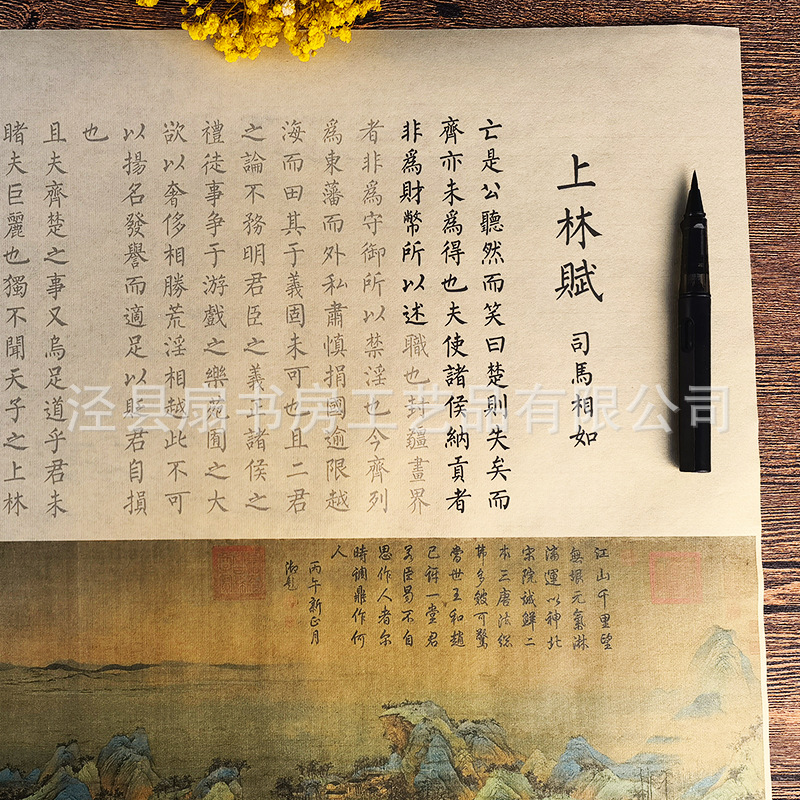 上林賦 司馬相如
亡是公聽然而笑曰楚則失矣而
齊亦未爲得也夫使諸侯納貢者
非爲財幣所以述職也封疆畫界
者非爲守御所以禁淫也今齊列
爲東藩而外私肅慎捐國逾限越
海而田其于義固未可也且二君
之論不務明君臣之義正諸侯之
禮徒事争于游戲之樂苑囿之大
欲以奢侈相勝荒淫相越此不可
以揚名發譽而適足以貶君自損
也
且夫齊楚之事又烏足道乎君未
睹夫巨麗也獨不聞天子之上林
江山千里望
無垠元氣淋
漓運以神北
宋院誠鮮二
本三唐法総
弗多皴可驚
當世王和趙
已訝一堂君
若臣曷不自
思作人者尔
時調鼎作何
人
丙午新正月
御題
泾县扇书房工艺品有限公司